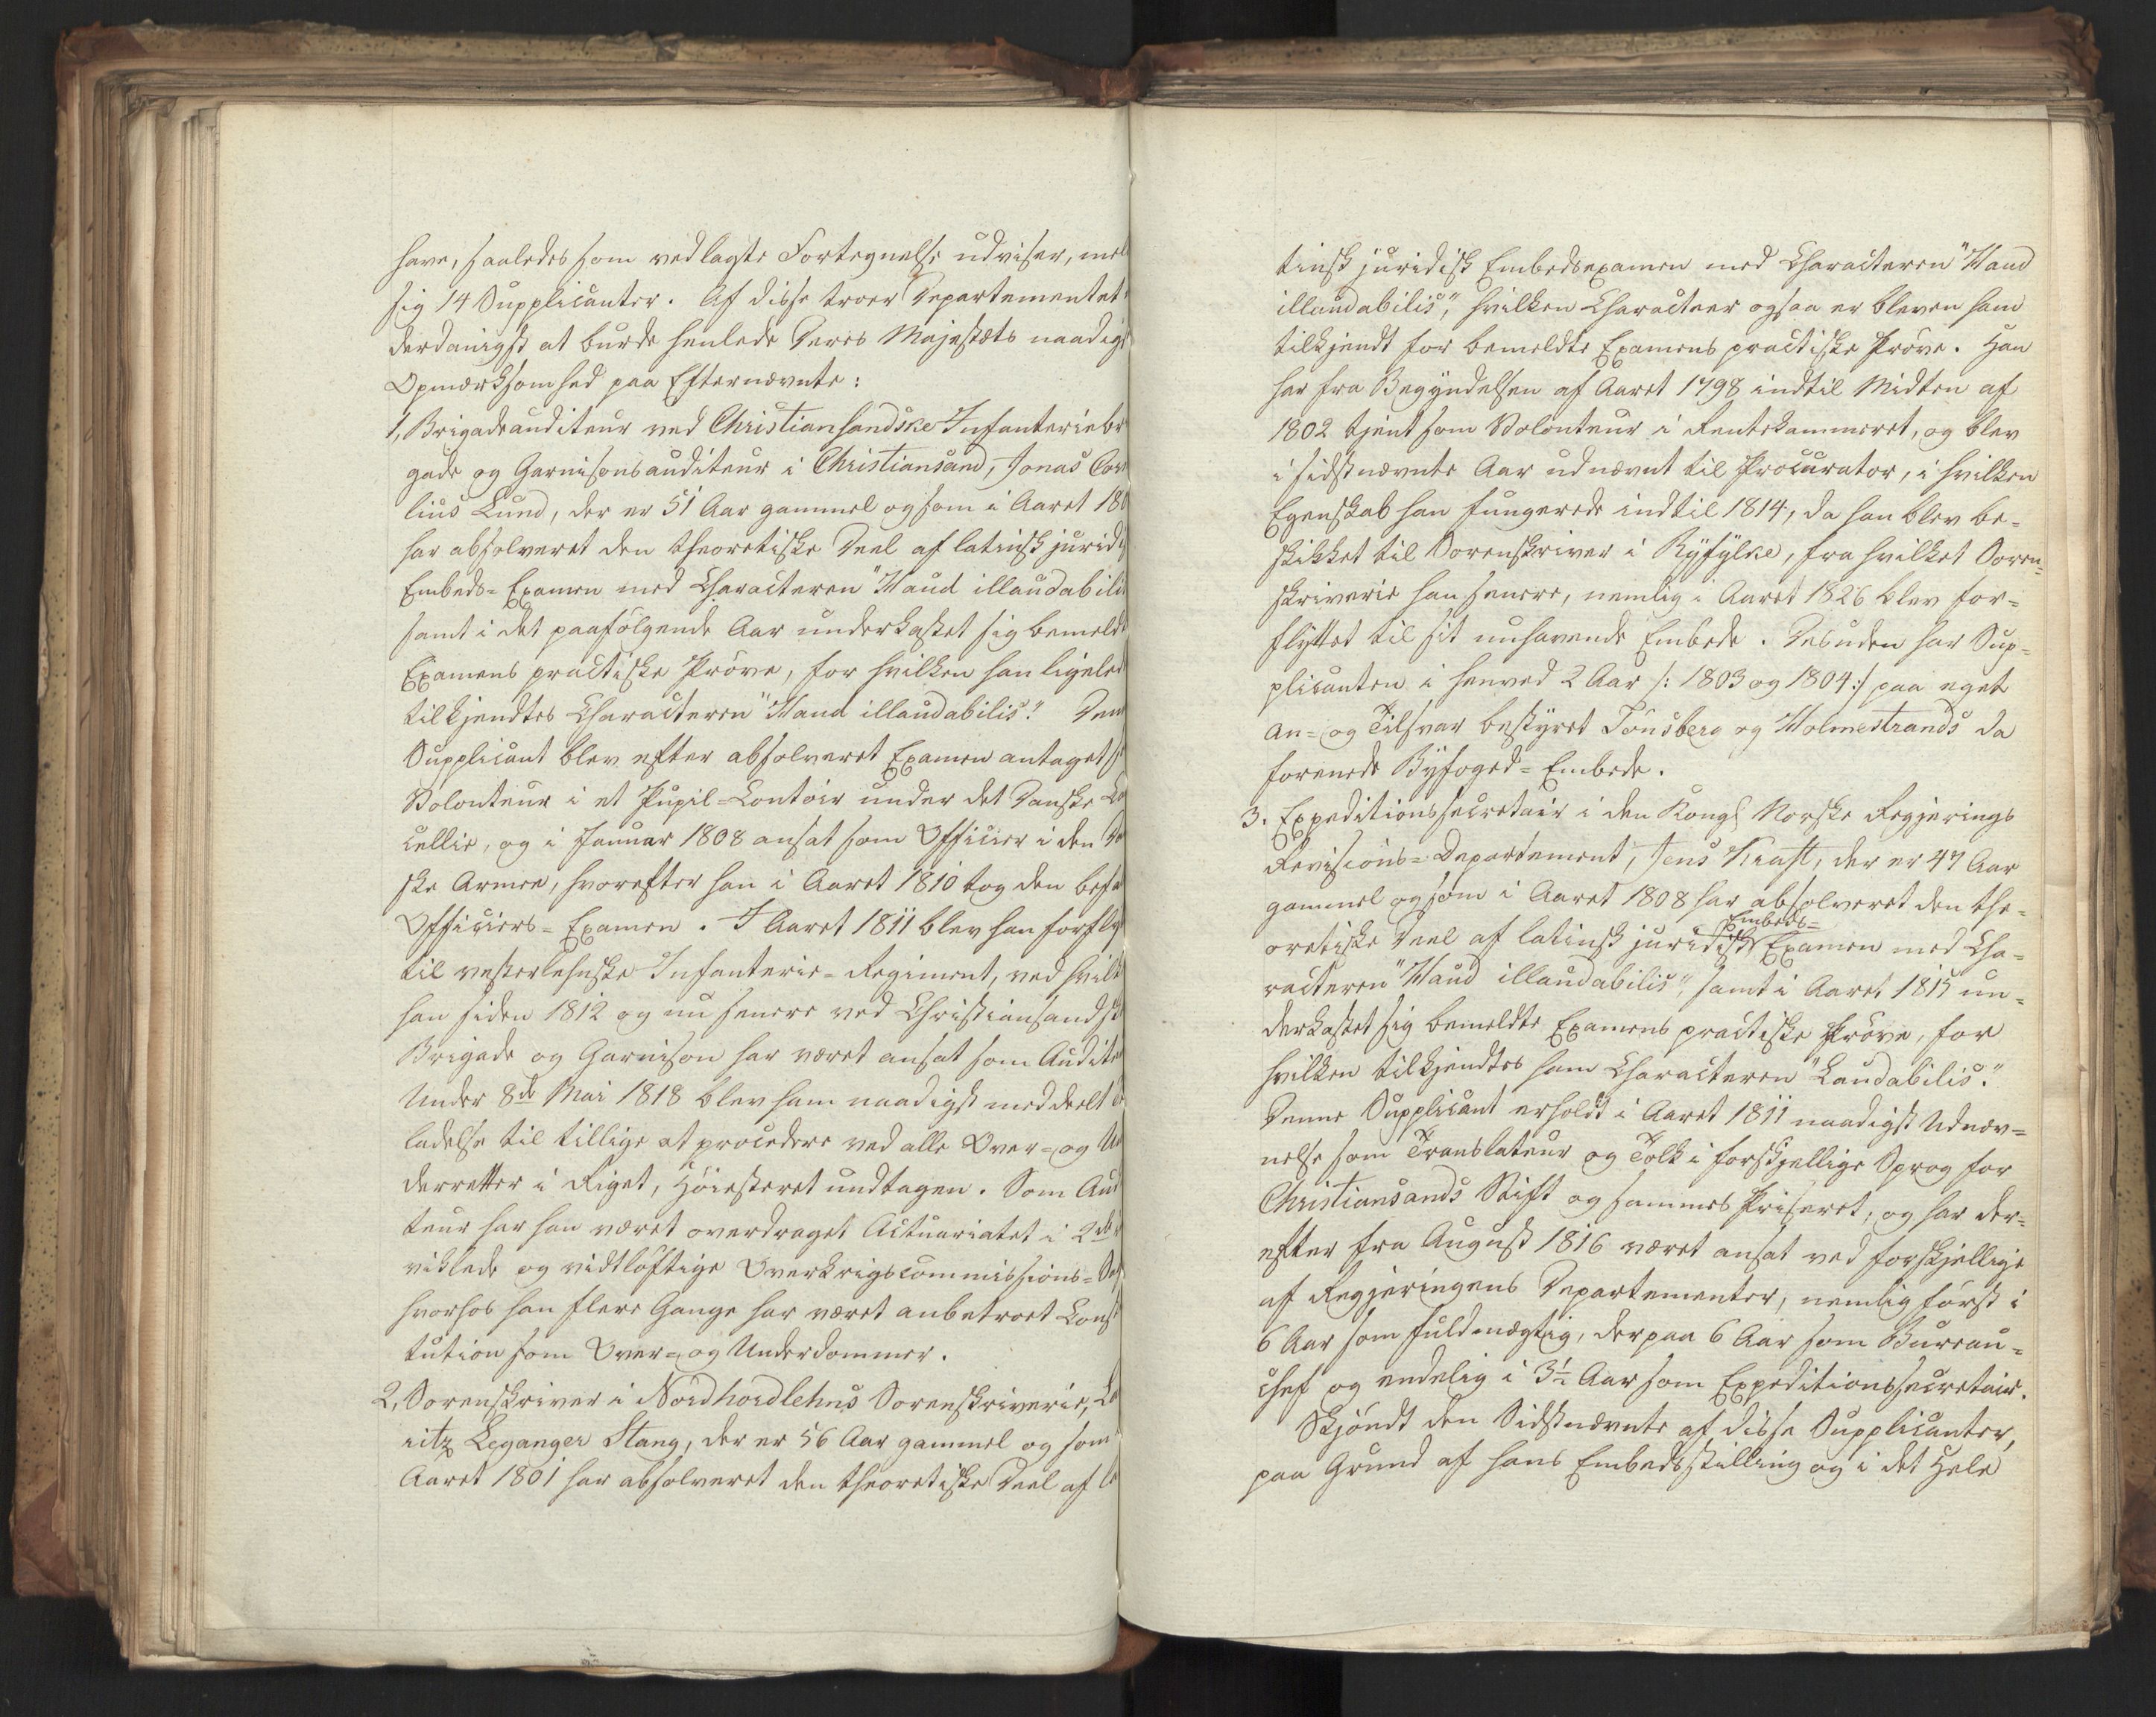 have, saaledes som vedlagte Fortegnelse udviser, mel
sig 14 Supplicanter. Af disse troer Departementet
derdanigst at burde henlede Deres Majestæts naadigs
Opmærksomhed paa Efternævnte:
1, Brigadeauditeur ved Christiansandske Infanteriebr
gade og Garnisonsauditeur i Christiansand, Jonas Cor
lius Lund, der er 51 Aar gammel og som i Aaret 180
har absolveret den theoretiske Deel af latinsk jurid
Embeds-Examen med Characteren "Haud illaudabili
samt i det paafølgende Aar underkastet sig bemeldt
Examens practiske Prøve, for hvilken han ligeled
tilkjendtes Characteren "Haud illaudabilis". Den
Supplicant blev efter absolveret Examen antaget s
Volonteur i et Pupil-Contoir under det Danske Ca
cellie, og i Januar 1808 ansat som Officier i den
ske Armee, hvorefter han i Aaret 1810 tog den befa
Officiers-Examen. I Aaret 1811 blev han forfly
til vesterlehnske Infanterie-Regiment, ved hvilk
han siden 1812 og nu senere ved Christiansandsk
Brigade og Garnison har været ansat som Audite
Under 8de Mai 1818 blev ham naadigst meddeelt
ladelse til tillige at procedere ved alle Over- og Un
derretter i Riget, Høiesteret undtagen. Som Aud
teur har han været overdraget Actuariatet i 2de
viklede og vidtløftige Overkrigscommissions-Sag
hvorhos han flere Gange har været anbetroet Cons
tution som Over- og Underdommer.
2, Sorenskriver i Nordhordlehns Sorenskriverie, La
ritz Leganger Stang, der er 56 Aar gammel og som
Aaret 1801 har absolveret den theoretiske Deel af la
tinsk juridisk Embedsexamen med Characteren "Haud
illaudabilis", hvilken Characteer ogsaa er bleven ham
tilkjendt for bemeldte Examens practiske Prøve. Han
har fra Begyndelsen af Aaret 1798 indtil Midten af
1802 tjent som Volonteur i Rentekammeret, og blev
i sidstnævnte Aar udnævnt til Procurator, i hvilken
Egenskab han fungerede indtil 1814, da han blev be-
skikket til Sorenskriver i Ryfylke, fra hvilket Soren-
skriverie han senere, nemlig i Aaret 1826 blev for-
flyttet til sit nuhavende Embede. Desuden har Sup-
plicanten i henved 2 Aar /: 1803 og 1804 :/ paa eget
An- og Tilsvar bestyret Tönsberg og Holmestrands da
forenede Byfoged-Embede.
3. Expeditionssecretair i den Kongl Norske Regjerings
Revisions-Departement, Jens Kraft, der er 47 Aar
gammel og som i Aaret 1808 har absolveret den the-
oretiske Deel af latinsk juridisk Embeds- Examen med Cha-
racteren "Haud illaudabilis", samt i Aaret 1815 un-
derkastet sig bemeldte Examens practiske Prøve, for
hvilken tilkjendtes ham Characteren "Laudabilis."
Denne Supplicant erholdt i Aaret 1811 naadigst Udnæv-
nelse som Translateur og Tolk i forskjellige Sprog for
Christiansands Stift og sammes Priseret, og har der-
efter fra August 1816 været ansat ved forskjellige
af Regjeringens Departementer, nemlig først i
6 Aar som Fuldmægtig, derpaa 6 Aar som Bureau-
chef og endelig i 3½ Aar som Expeditionssecretair.
Skjöndt den Sidstnævnte af disse Supplicanter,
paa Grund af hans Embedsstilling og i det Hele